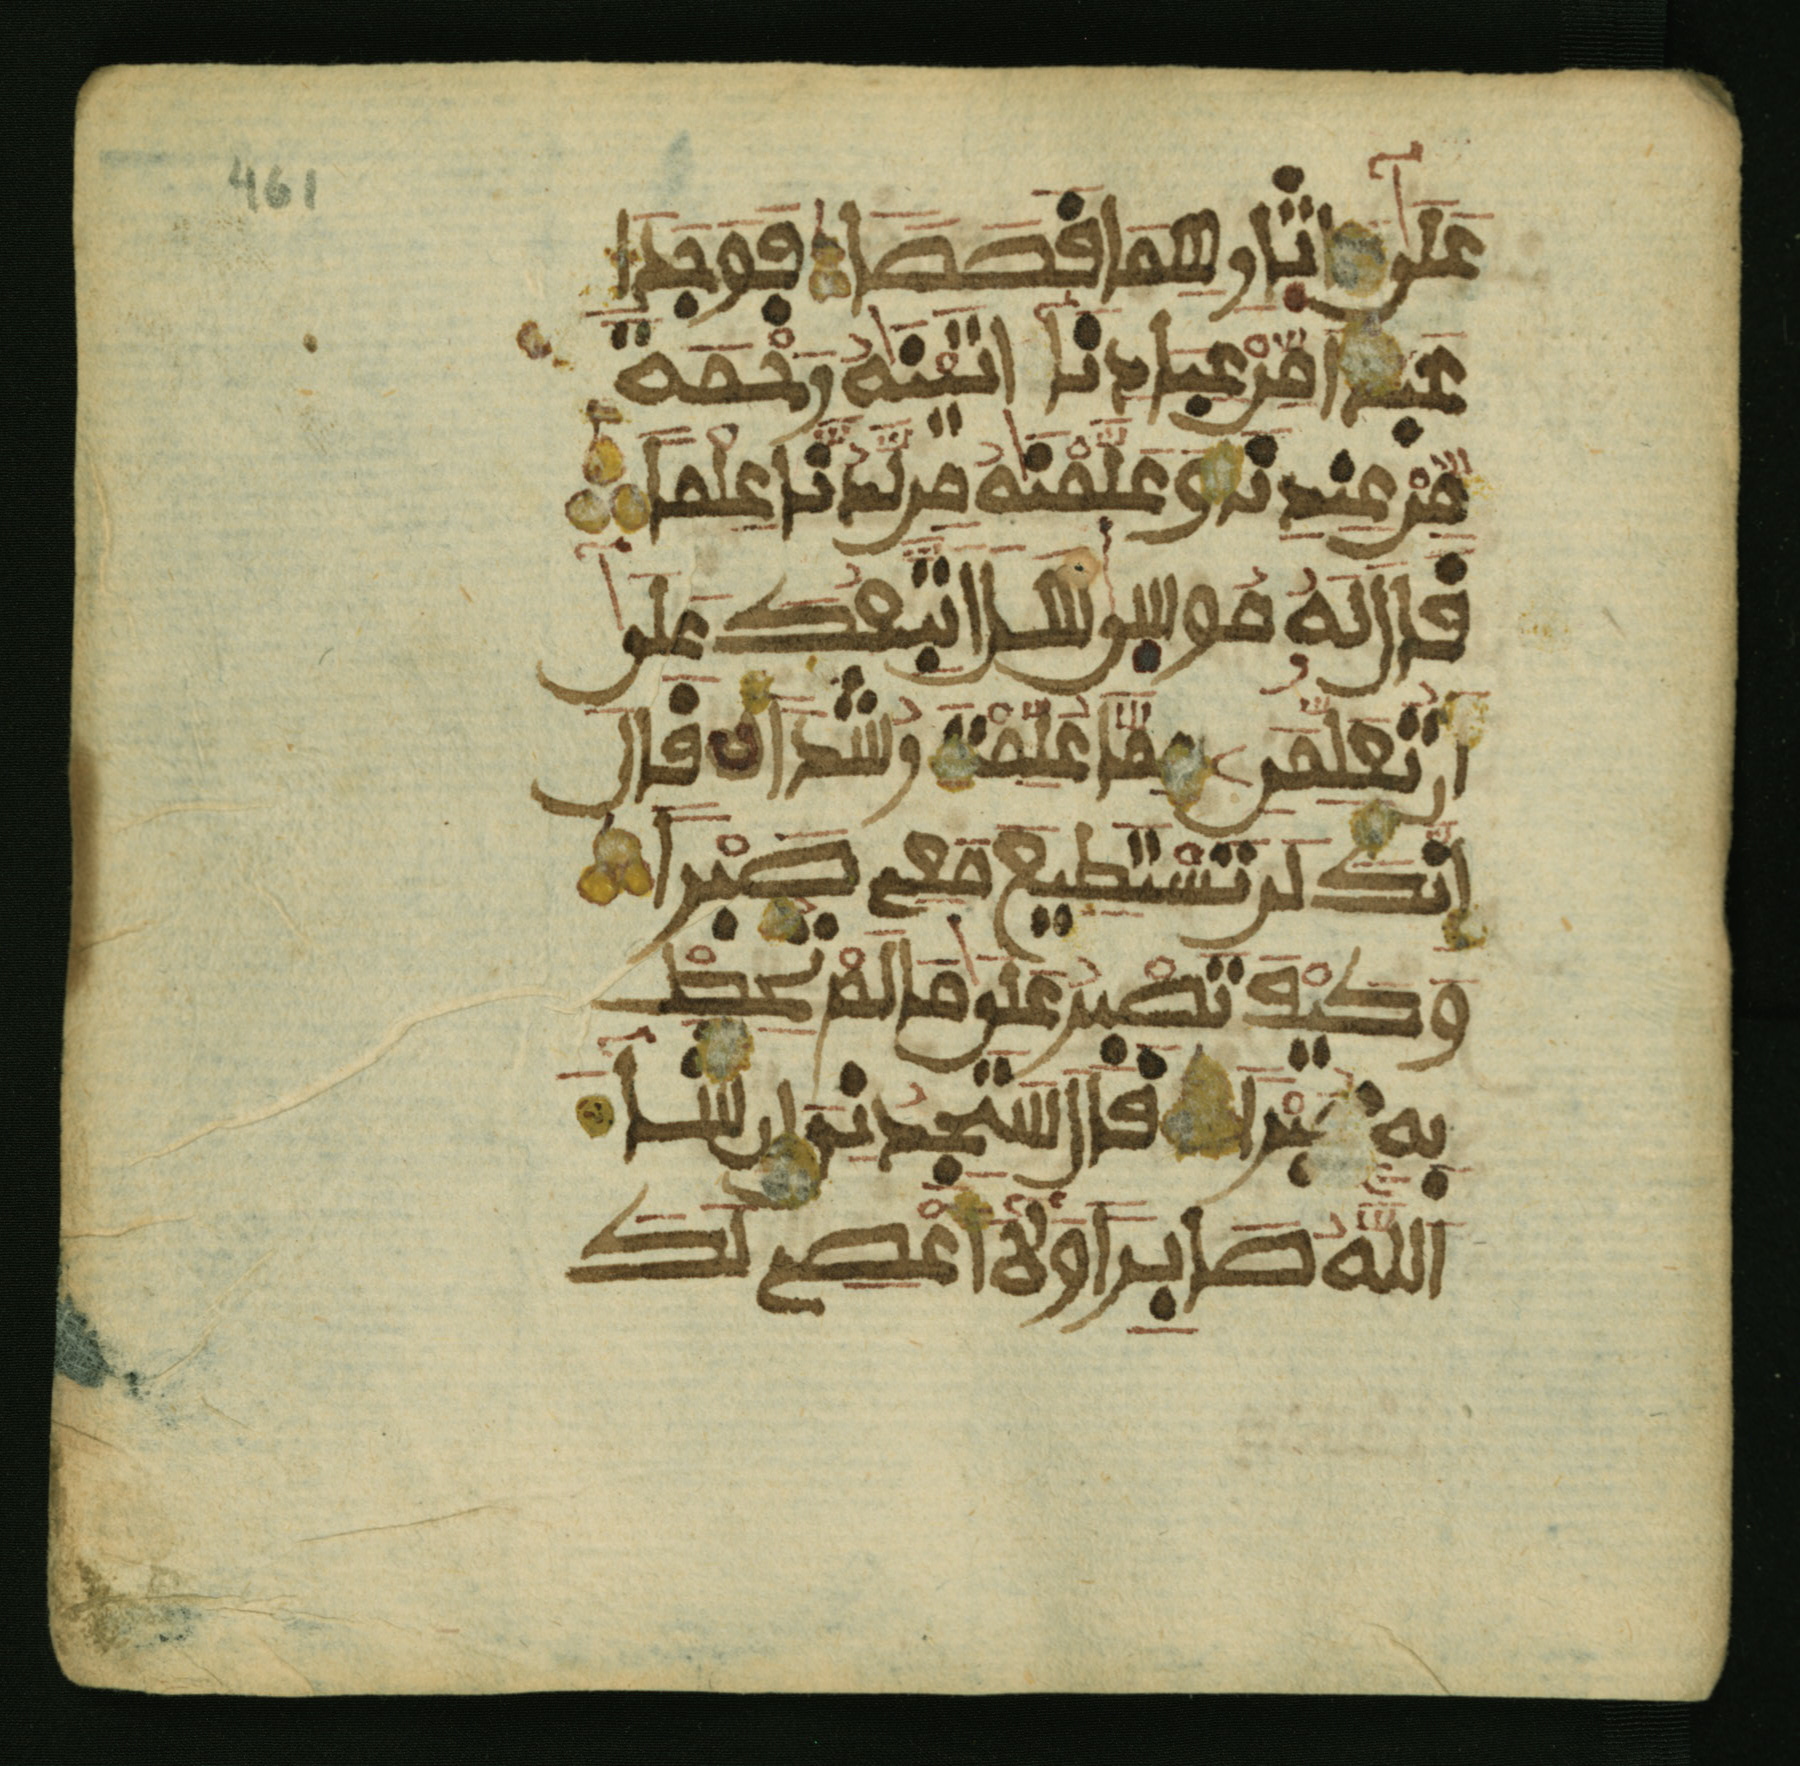 461
علىٰ اثارهما قصصا فوجدا
عبدا من عبادنا اتينٰه رحمة
من عندنا وعلمنٰه من لدنا علما
قال له موسىٰ هل اتبعك علىٰ
ان تعلمن مما علمت رشدا قال
انك لن تستطيع معى صبرا
وكيف تصبر علىٰ ما لم تحط
به خبرا قال ستجدنى ان شا
الله صابرا ولا اعصى لك